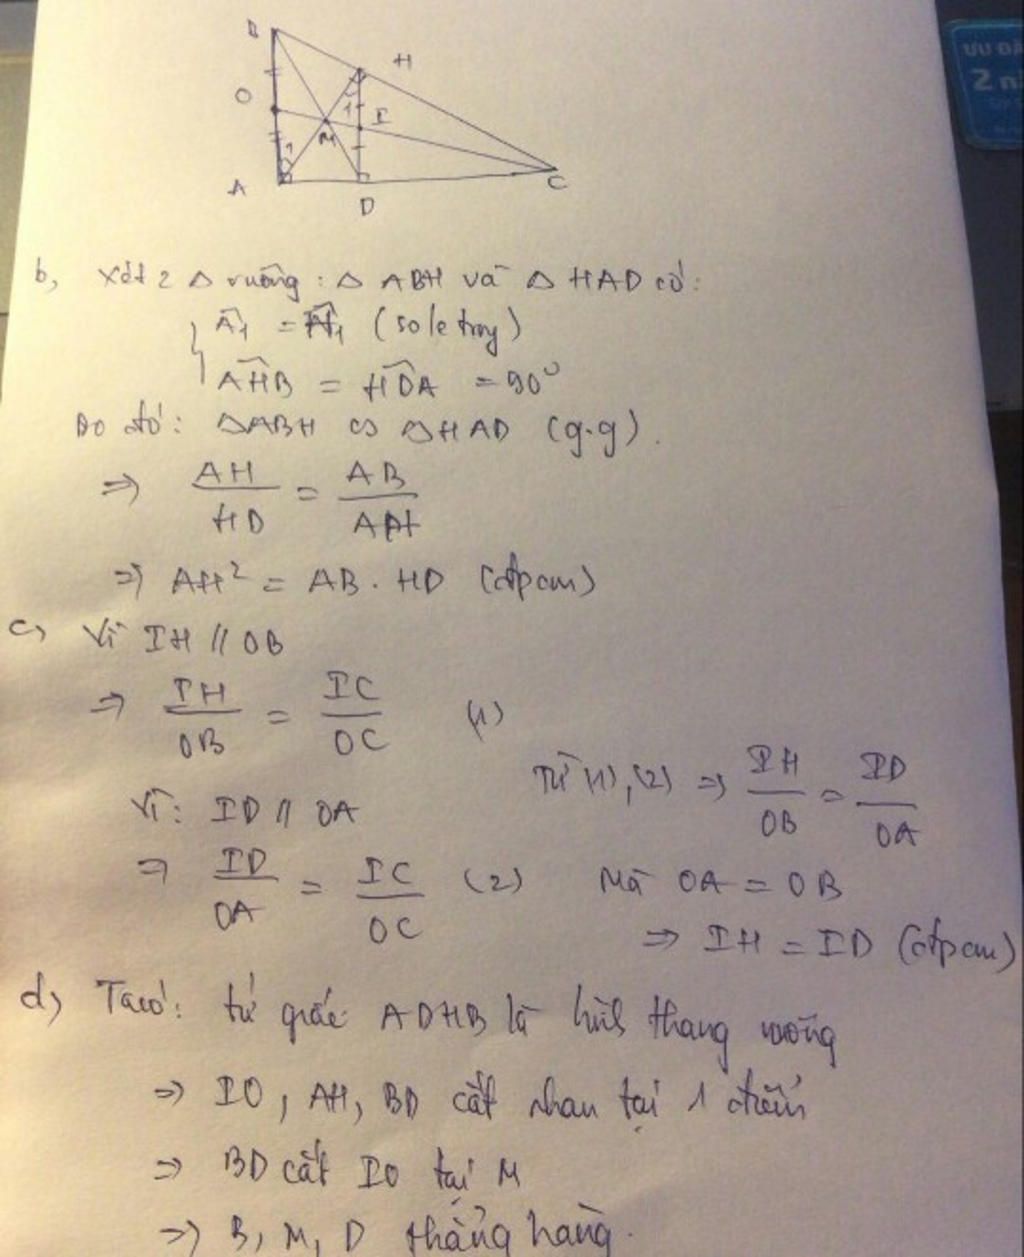 B
H
O
1
I
M
1
A
D
C
ƯU ĐÃ
2 n
b, Xét 2 Δ vuông: Δ ABH và Δ HAD có:
Â1 = Ĥ1 (so le trong)
AHB = HDA = 90°
Do đó: ΔABH ∽ ΔHAD (g.g).
⇒ AH/HD = AB/AH
⇒ AH² = AB . HD (đpcm)
c, Vì IH // OB
⇒ IH/OB = IC/OC (1)
Vì: ID // OA
⇒ ID/OA = IC/OC (2)
Từ (1), (2) ⇒ IH/OB = ID/OA
Mà OA = OB
⇒ IH = ID (đpcm)
d, Ta có: tứ giác ADHB là hình thang vuông
⇒ IO, AH, BD cắt nhau tại 1 điểm
⇒ BD cắt IO tại M
⇒ B, M, D thẳng hàng.